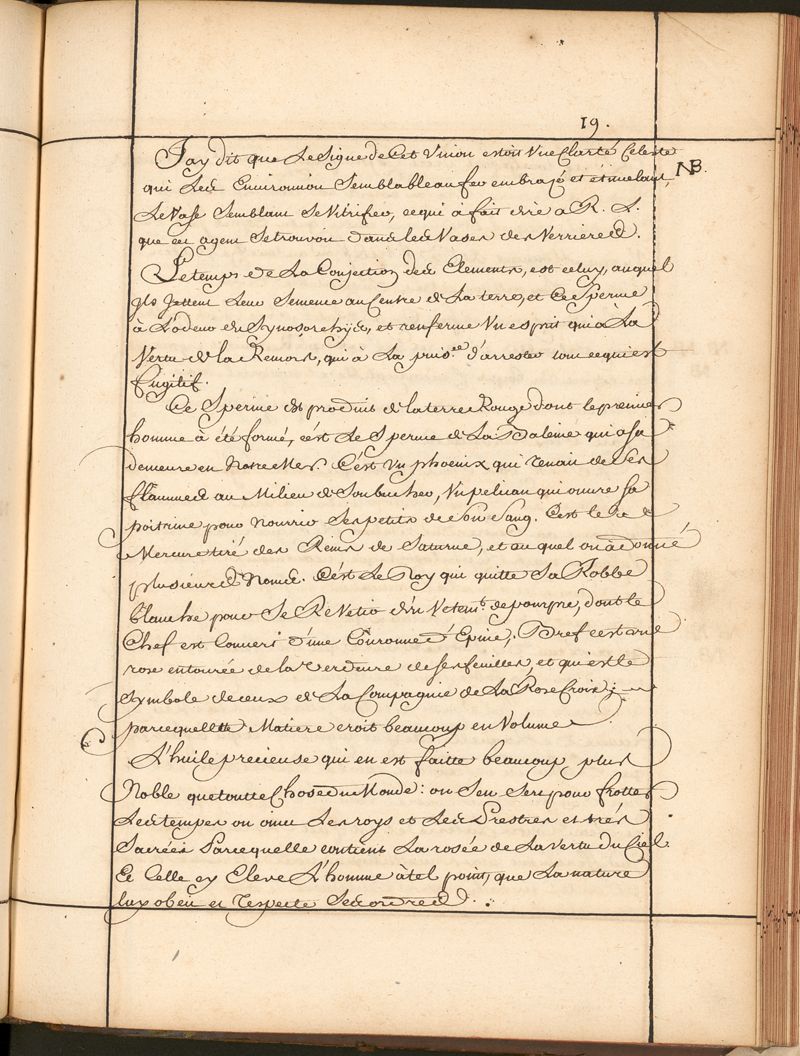 19.
NB.
J'ay dit que Le Signe de Cet Union estoit Une Clarté Celeste
qui Les Environnoit Semblable au feu embrazé et étincelant,
Le Vase Semblant Se Vitrifier, ce qui à fait dire à R. L.
que cet agent Se trouvoit dans Les Vases des Verrieres.
Le temps de La Conjection des Elements, est celuy, auquel
Ils Jettent Leur Semence au Centre de La terre, et Ce Sperme
à L'odeur du et renferme Un esprit qui à La
Vertu de la Remora, qui à La puis.ce d'arrester tout ce qui est
fugitif.
Ce Sperme est produit de la terre Rouge dont le premier
homme à été formé, c'est Le Sperme de La Baleine qui a sa
demeure en Notre Mer. C'est Un phoenix qui renait de Ses
flammes au Milieu de Son bucher, Un pelican qui ouvre sa
poitrine pour Nourrir Ses petits de Son Sang. C'est le
Mercure tiré des Reins de Saturne, et auquel on à donné
plusieurs Noms. C'est Le Roy qui quitte Sa Robbe
blanche pour Se Revetir d'un Vetem.t de pourpre, dont le
Chef est Couvert d'une Couronne d'Epine, Bref c'est une
rose entourée de la Verdeure de ses feuilles, et qui est le
Symbole de ceux de La Compagnie de La Rose Croix;
parcequ'elle Matiere croit beaucoup en Volume
L'huile precieuse qui en est faitte beaucoup plus
Noble que toutte Chose du Monde: on S'en Sert pour frotter
Les temples on oint Les roys et Les Prestres et très
Sacrées Parcequ'elle contient La rosée de La Vertu du Ciel.
Et Celle cy Eleve L'homme à tel point, que La nature
luy obeit et respecte Ses ordres.